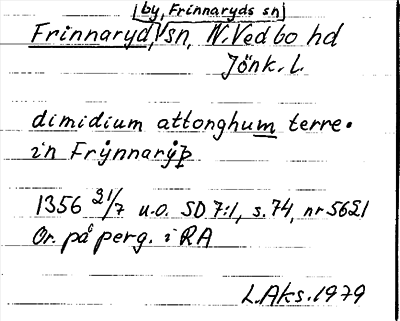 by, Frinnaryds sn
Frinnaryd, sn, N. Vedbo hd
Jönk. l.
dimidium attonghum terre.
in Frÿnnarÿþ
1356 21/7 u.o. SD 7:1, s. 74, nr 5621
Or. på perg. i RA
L.Aks. 1979